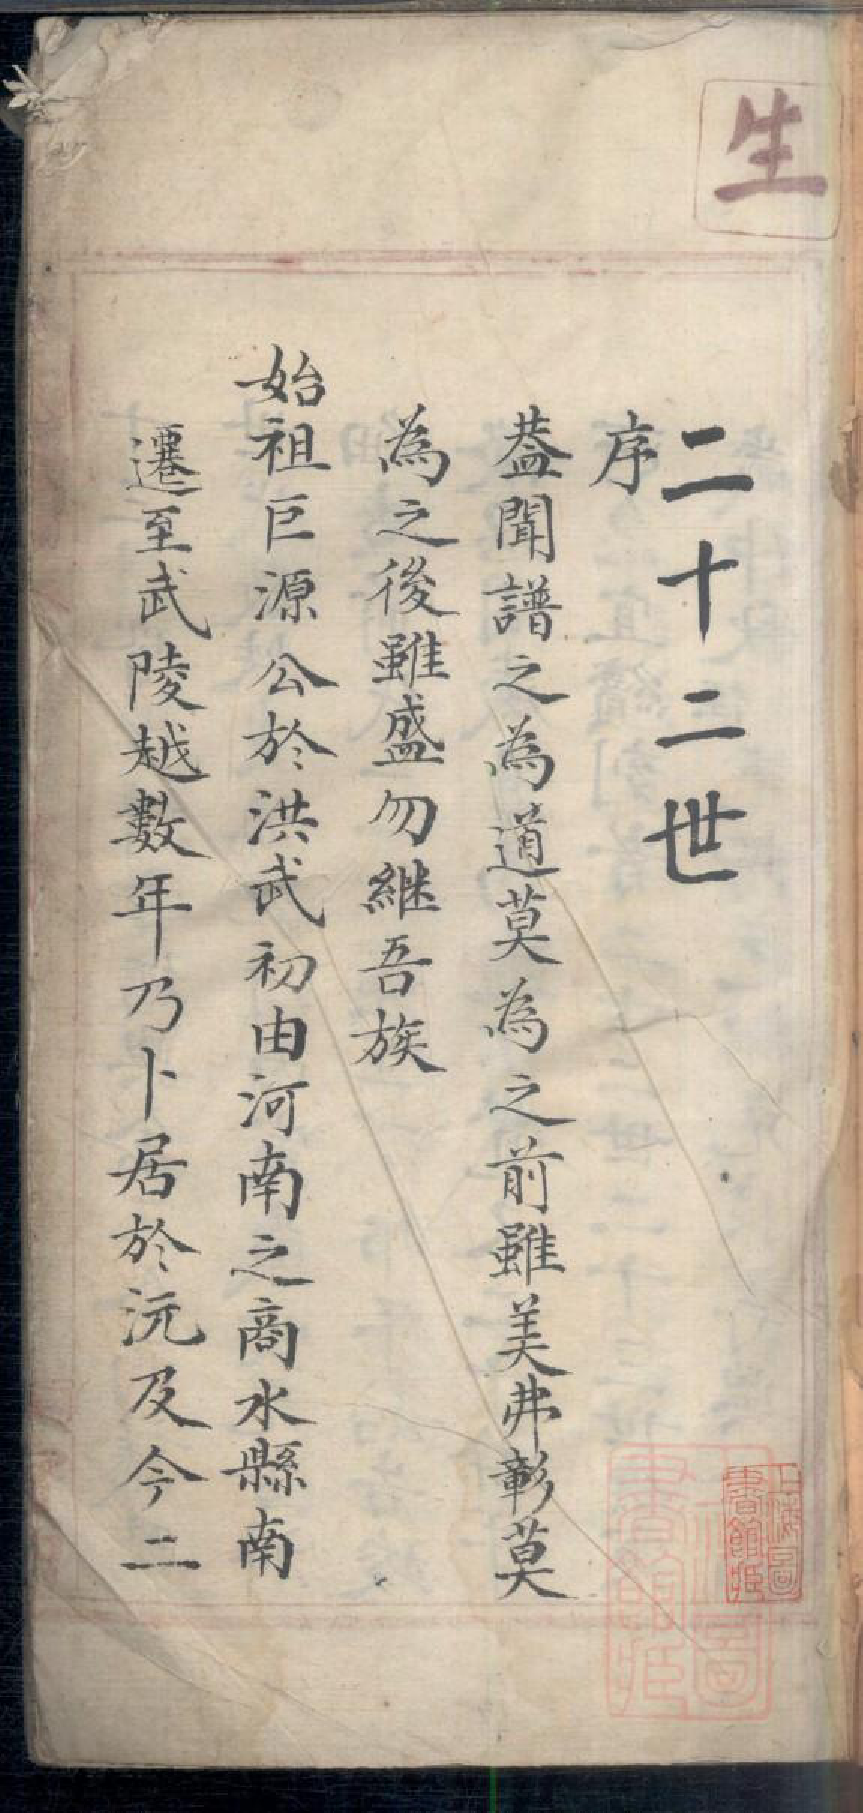 生
二十二世
序
葢聞譜之為道莫為之前雖美弗彰莫
為之後雖盛勿継吾族
始祖巨源公於洪武初由河南之商水縣南
遷至武陵越數年乃卜居於沅及今二
上海圖
書館藏